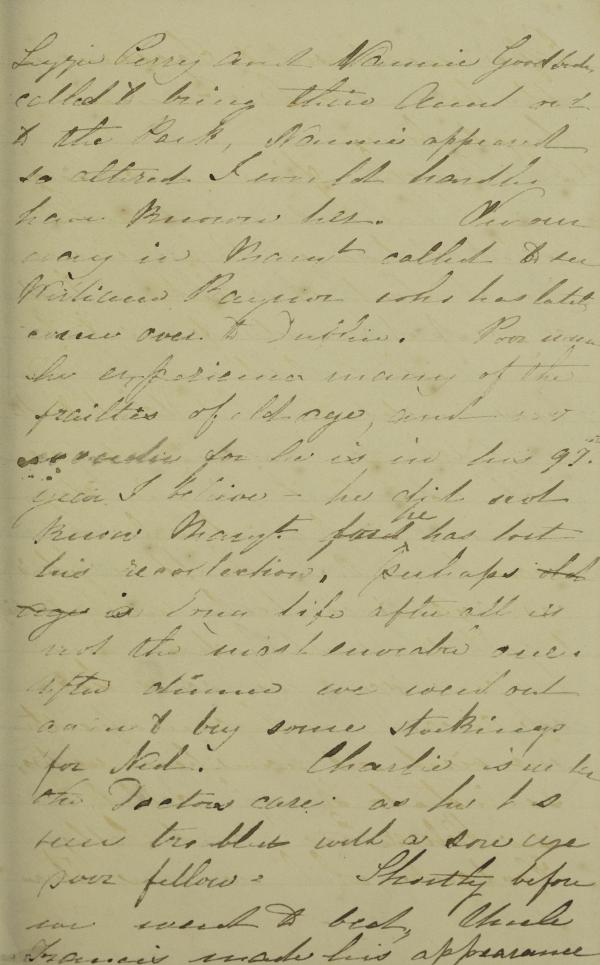 Lizzie Perry and Nannie Goodbody
called to bring their Aunt out
to the Park, Nannie appeared
so altered I would hardly
have known her. On our
way in Marg't called to see
William Raynor who has lately
come over to Dublin. Poor man
he experiences many of the
frailties of old age, and no
wonder for he is in his 97th
year I believe - he did not
know Margt. he has lost
his recollection. Perhaps old
age is long life after all is
not the most enviable one.
After dinner we went out
again to buy some stockings
for Ned. Charlie is under
the Doctors care as he has
been troubled with a sore eye
poor fellow = Shortly before
we went to bed, Uncle
Francis made his appearance